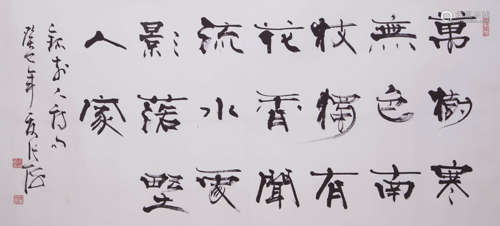 萬樹寒
無色南
枝獨有
花香聞
流水處
影落野
人家
錄前人詩句
年